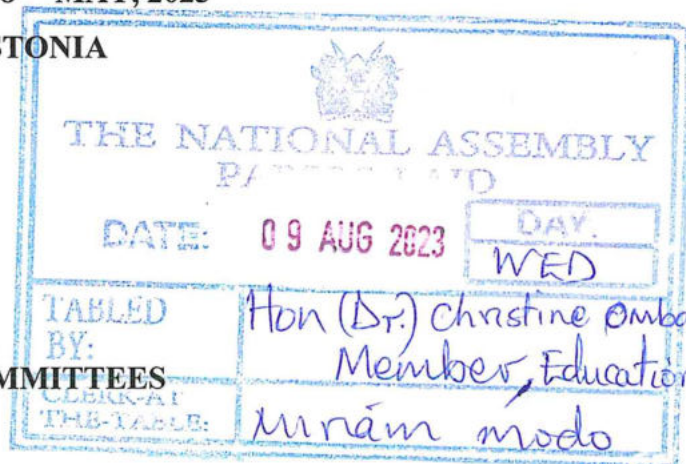 MAY, 2023
STONIA
THE NATIONAL ASSEMBLY
PAPERS LAID
DATE: 09 AUG 2023 DAY.
WED
TABLED BY: Hon (Dr.) Christine Omba
Member, Education
MMITTEES
CLERK-AT THE-TABLE: Miriam Modo